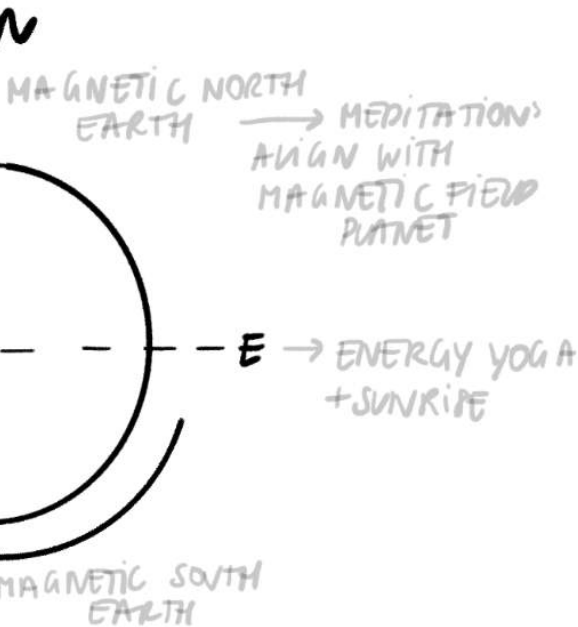 N
MAGNETIC NORTH
EARTH → MEDITATIONS
ALIGN WITH
MAGNETIC FIELD
PLANET
E → ENERGY YOGA
+SUNRISE
MAGNETIC SOUTH
EARTH